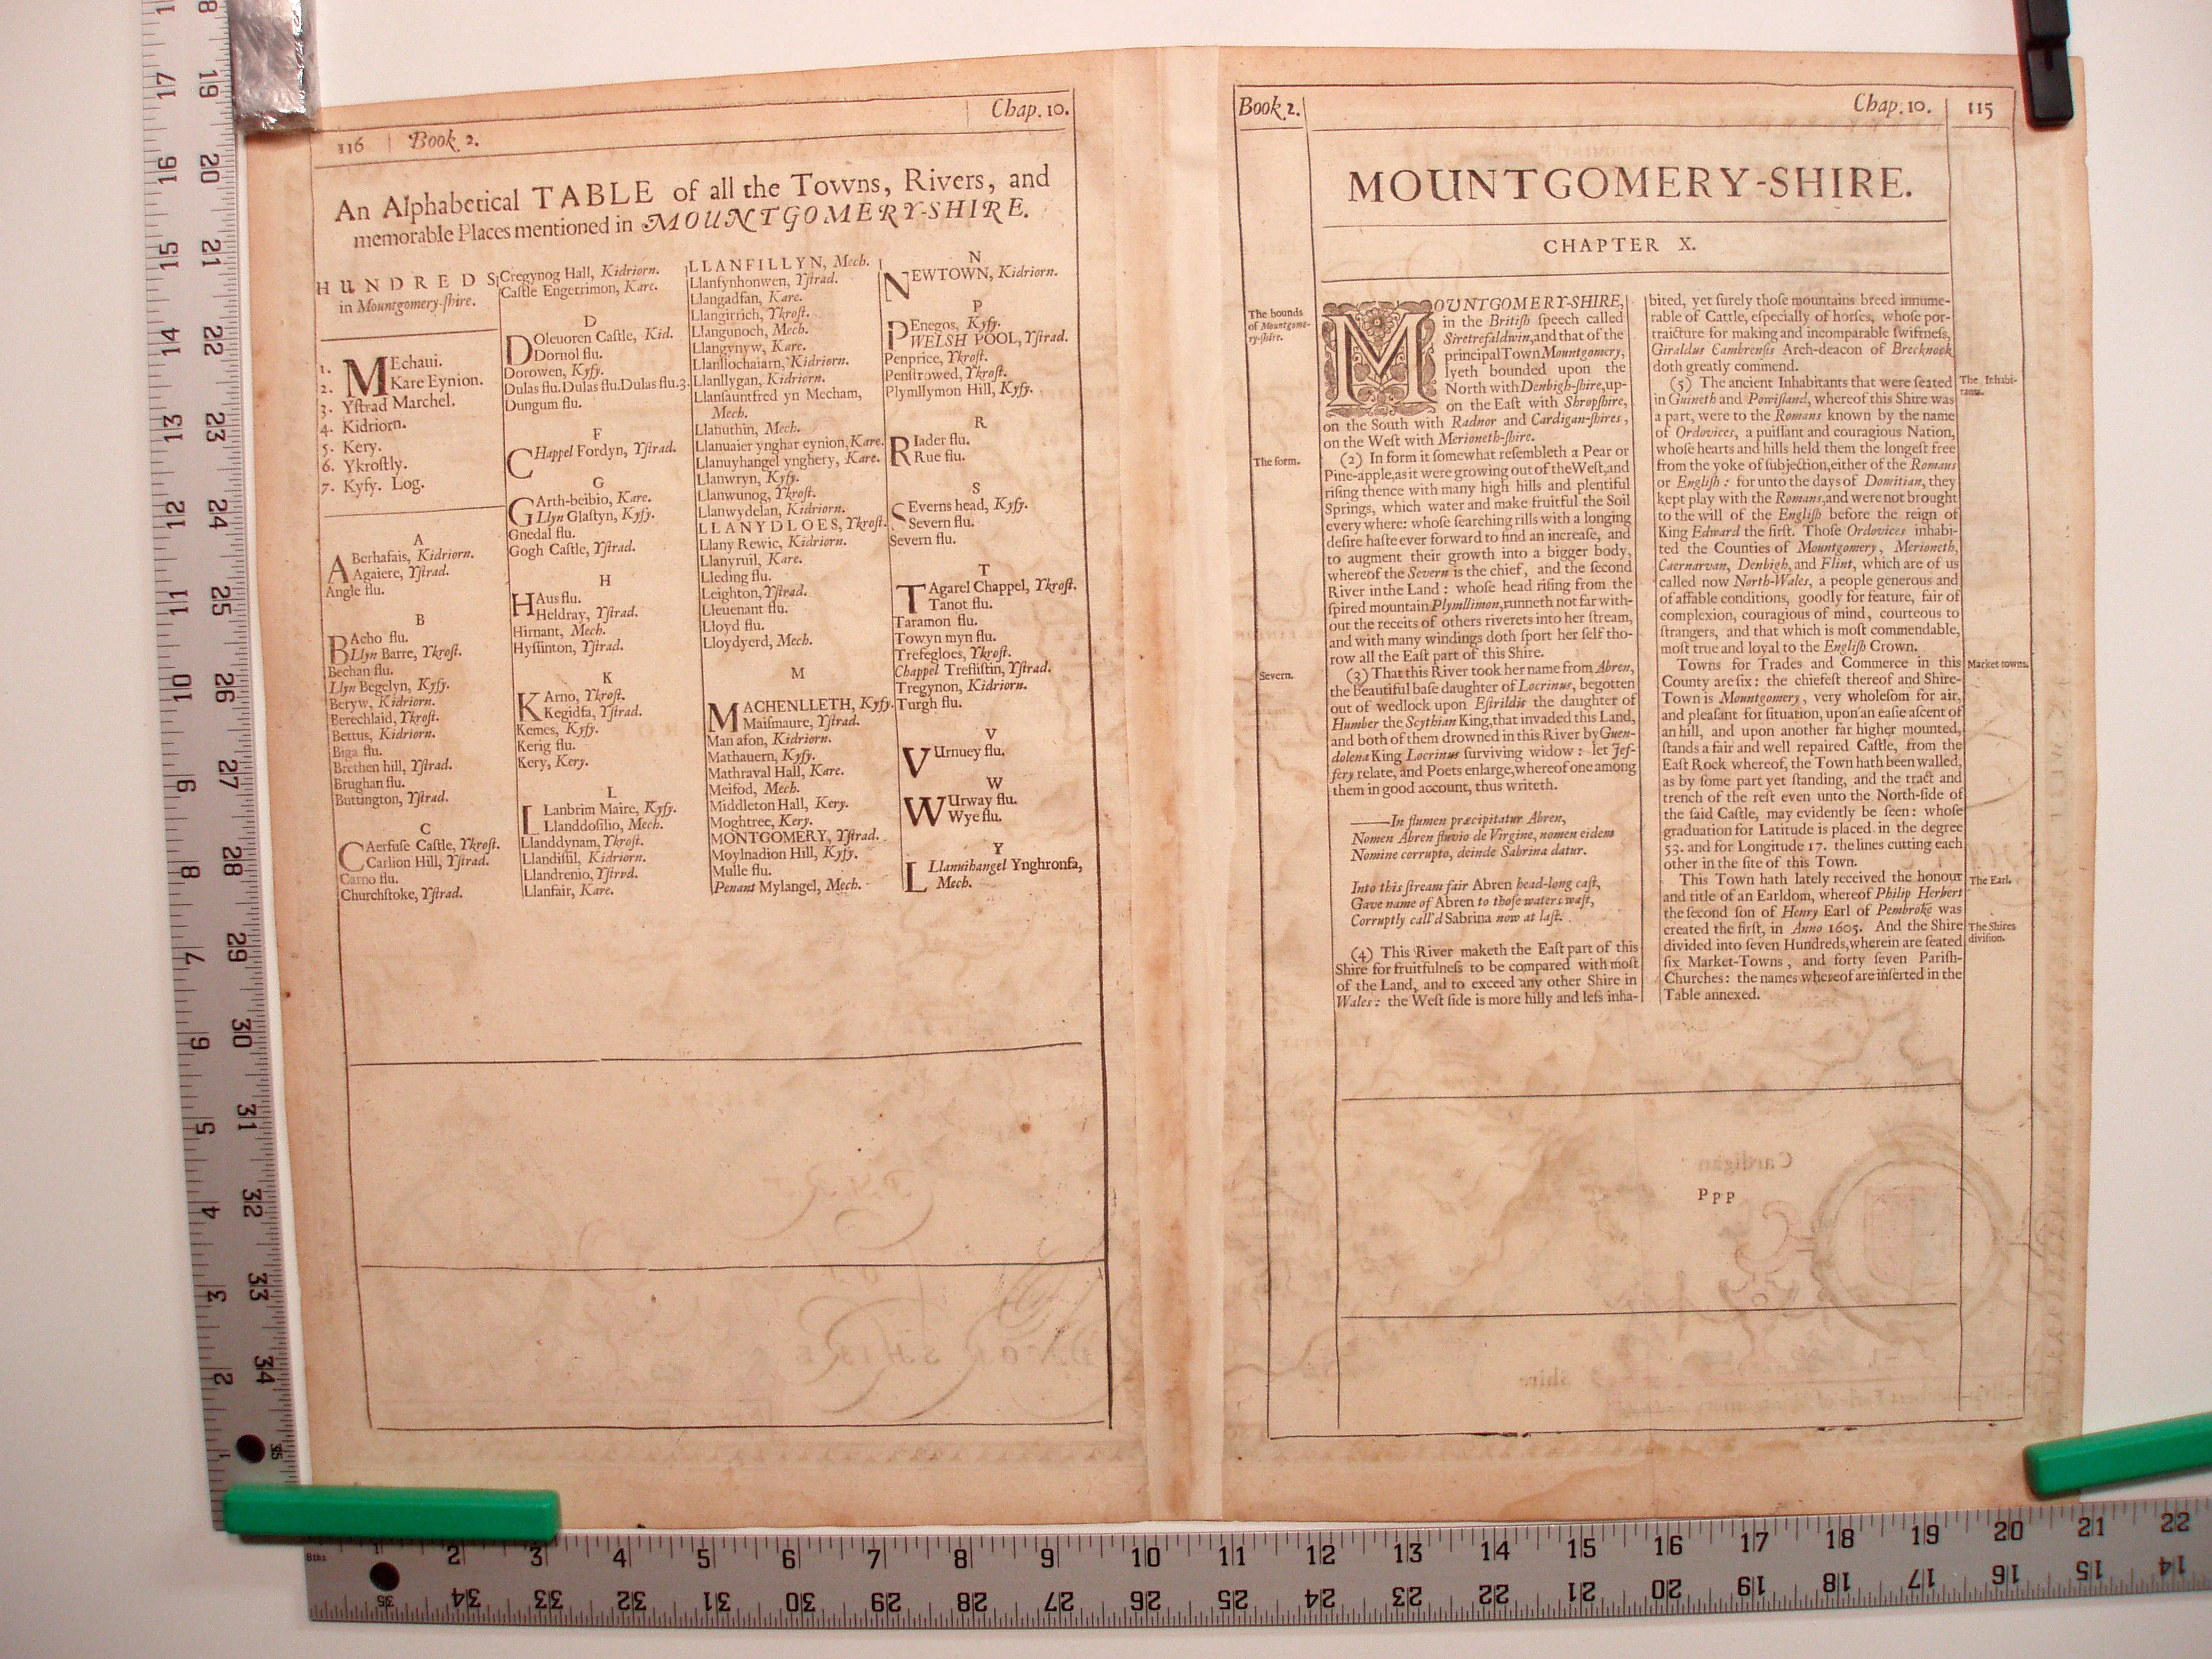 116 | Book 2.
Chap. 10.
An Alphabetical TABLE of all the Towns, Rivers, and
memorable Places mentioned in MOUNTGOMERY-SHIRE.
HUNDREDS
in Mountgomery-ſhire.
1. MEchaui.
2. Kare Eynion.
3. Yſtrad Marchel.
4. Kidriorn.
5. Kery.
6. Ykroſtly.
7. Kyfy. Log.
A
ABerhafais, Kidriorn.
Agaiere, Yſtrad.
Angle flu.
B
BAcho flu.
Llyn Barre, Ykroſt.
Bechan flu.
Llyn Begelyn, Kyfy.
Beryw, Kidriorn.
Berechlaid, Ykroſt.
Bettus, Kidriorn.
Biga flu.
Brethen hill, Yſtrad.
Brughan flu.
Buttington, Yſtrad.
C
CAerfuſe Caſtle, Ykroſt.
Carlion Hill, Yſtrad.
Carno flu.
Churchſtoke, Yſtrad.
Cregynog Hall, Kidriorn.
Caſtle Engerrimon, Kare.
D
DOleuoren Caſtle, Kid.
Dornol flu.
Dorowen, Kyfy.
Dulas flu. Dulas flu. Dulas flu. 3.
Dungum flu.
F
CHappel Fordyn, Yſtrad.
G
GArth-beibio, Kare.
Llyn Glaſtyn, Kyfy.
Gnedal flu.
Gogh Caſtle, Yſtrad.
H
HAus flu.
Heldray, Yſtrad.
Hirnant, Mech.
Hyſſinton, Yſtrad.
K
KArno, Ykroſt.
Kegidfa, Yſtrad.
Kemes, Kyfy.
Kerig flu.
Kery, Kery.
L
LLanbrim Maire, Kyfy.
Llanddoſilio, Mech.
Llanddynam, Ykroſt.
Llandiſſil, Kidriorn.
Llandrenio, Yſtrrd.
Llanfair, Kare.
LLANFILLYN, Mech.
Llanſynhonwen, Yſtrad.
Llangadfan, Kare.
Llangirrich, Ykroſt.
Llangunoch, Mech.
Llangynyw, Kare.
Llanllochaiarn, Kidriorn.
Llanllygan, Kidriorn.
Llanſauntfred yn Mecham,
Mech.
Llanuthin, Mech.
Llanuaier ynghar eynion, Kare.
Llanuyhangel ynghery, Kare.
Llanwryn, Kyfy.
Llanwunog, Ykroſt.
Llanwydelan, Kidriorn.
LLANYDLOES, Ykroſt.
Llany Rewic, Kidriorn.
Llanyruil, Kare.
Lleding flu.
Leighton, Yſtrad.
Lleuenant flu.
Lloyd flu.
Lloydyerd, Mech.
M
MACHENLLETH, Kyfy.
Maiſmaure, Yſtrad.
Man afon, Kidriorn.
Mathauern, Kyfy.
Mathraval Hall, Kare.
Meifod, Mech.
Middleton Hall, Kery.
Moghtree, Kery.
MONTGOMERY, Yſtrad.
Moylnadion Hill, Kyfy.
Mulle flu.
Penant Mylangel, Mech.
N
NEWTOWN, Kidriorn.
P
PEnegos, Kyfy.
WELSH POOL, Yſtrad.
Penprice, Ykroſt.
Penſtrowed, Ykroſt.
Plymllymon Hill, Kyfy.
R
RIader flu.
Rue flu.
S
SEverns head, Kyfy.
Severn flu.
Severn flu.
T
TAgarel Chappel, Ykroſt.
Tanot flu.
Taramon flu.
Towyn myn flu.
Trefegloes, Ykroſt.
Chappel Treſliſtin, Yſtrad.
Tregynon, Kidriorn.
Turgh flu.
V
VUrnuey flu.
W
WUrway flu.
Wye flu.
Y
LLanuihangel Ynghronfa,
Mech.
Book 2.
Chap. 10. | 115
MOUNTGOMERY-SHIRE.
CHAPTER X.
The bounds
of Mountgome-
ry-ſhire.
MOUNTGOMERY-SHIRE,
in the Britiſh ſpeech called
Siretrefaldwin, and that of the
principal Town Mountgomery,
lyeth bounded upon the
North with Denbigh-ſhire, up-
on the Eaſt with Shropſhire,
on the South with Radnor and Cardigan-ſhires,
on the Weſt with Merioneth-ſhire.
The form.
(2) In form it ſomewhat reſembleth a Pear or
Pine-apple, as it were growing out of the Weſt, and
riſing thence with many high hills and plentiful
Springs, which water and make fruitful the Soil
every where: whoſe ſearching rills with a longing
deſire haſte ever forward to find an increaſe, and
to augment their growth into a bigger body,
whereof the Severn is the chief, and the ſecond
River in the Land: whoſe head riſing from the
ſpired mountain Plymllimon, runneth not far with-
out the receits of others riverets into her ſtream,
and with many windings doth ſport her ſelf tho-
row all the Eaſt part of this Shire.
Severn.
(3) That this River took her name from Abren,
the beautiful baſe daughter of Locrinus, begotten
out of wedlock upon Eſtrildis the daughter of
Humber the Scythian King, that invaded this Land,
and both of them drowned in this River by Guen-
dolena King Locrinus ſurviving widow: let Jef-
fery relate, and Poets enlarge, whereof one among
them in good account, thus writeth.
——In flumen præcipitatur Abren,
Nomen Abren fluvio de Virgine, nomen eidem
Nomine corrupto, deinde Sabrina datur.
Into this ſtream fair Abren head-long caſt,
Gave name of Abren to thoſe waters waſt,
Corruptly call'd Sabrina now at laſt.
(4) This River maketh the Eaſt part of this
Shire for fruitfulneſs to be compared with moſt
of the Land, and to exceed any other Shire in
Wales: the Weſt ſide is more hilly and leſs inha-
bited, yet ſurely thoſe mountains breed innume-
rable of Cattle, eſpecially of horſes, whoſe por-
traicture for making and incomparable ſwiftneſs,
Giraldus Cambrenſis Arch-deacon of Brecknock
doth greatly commend.
The Inhabi-
tants.
(5) The ancient Inhabitants that were ſeated
in Guineth and Powiſland, whereof this Shire was
a part, were to the Romans known by the name
of Ordovices, a puiſſant and couragious Nation,
whoſe hearts and hills held them the longeſt free
from the yoke of ſubjection, either of the Romans
or Engliſh: for unto the days of Domitian, they
kept play with the Romans, and were not brought
to the will of the Engliſh before the reign of
King Edward the firſt. Thoſe Ordovices inhabi-
ted the Counties of Mountgomery, Merioneth,
Caernarvan, Denbigh, and Flint, which are of us
called now North-Wales, a people generous and
of affable conditions, goodly for feature, fair of
complexion, couragious of mind, courteous to
ſtrangers, and that which is moſt commendable,
moſt true and loyal to the Engliſh Crown.
Market towns.
Towns for Trades and Commerce in this
County are ſix: the chiefeſt thereof and Shire-
Town is Mountgomery, very wholeſom for air,
and pleaſant for ſituation, upon an eaſie aſcent of
an hill, and upon another far higher mounted,
ſtands a fair and well repaired Caſtle, from the
Eaſt Rock whereof, the Town hath been walled,
as by ſome part yet ſtanding, and the tract and
trench of the reſt even unto the North-ſide of
the ſaid Caſtle, may evidently be ſeen: whoſe
graduation for Latitude is placed in the degree
53. and for Longitude 17. the lines cutting each
other in the ſite of this Town.
The Earl.
This Town hath lately received the honour
and title of an Earldom, whereof Philip Herbert
the ſecond ſon of Henry Earl of Pembroke was
created the firſt, in Anno 1605. And the Shire
The Shires
diviſion.
divided into ſeven Hundreds, wherein are ſeated
ſix Market-Towns, and forty ſeven Pariſh-
Churches: the names whereof are inſerted in the
Table annexed.
Ppp